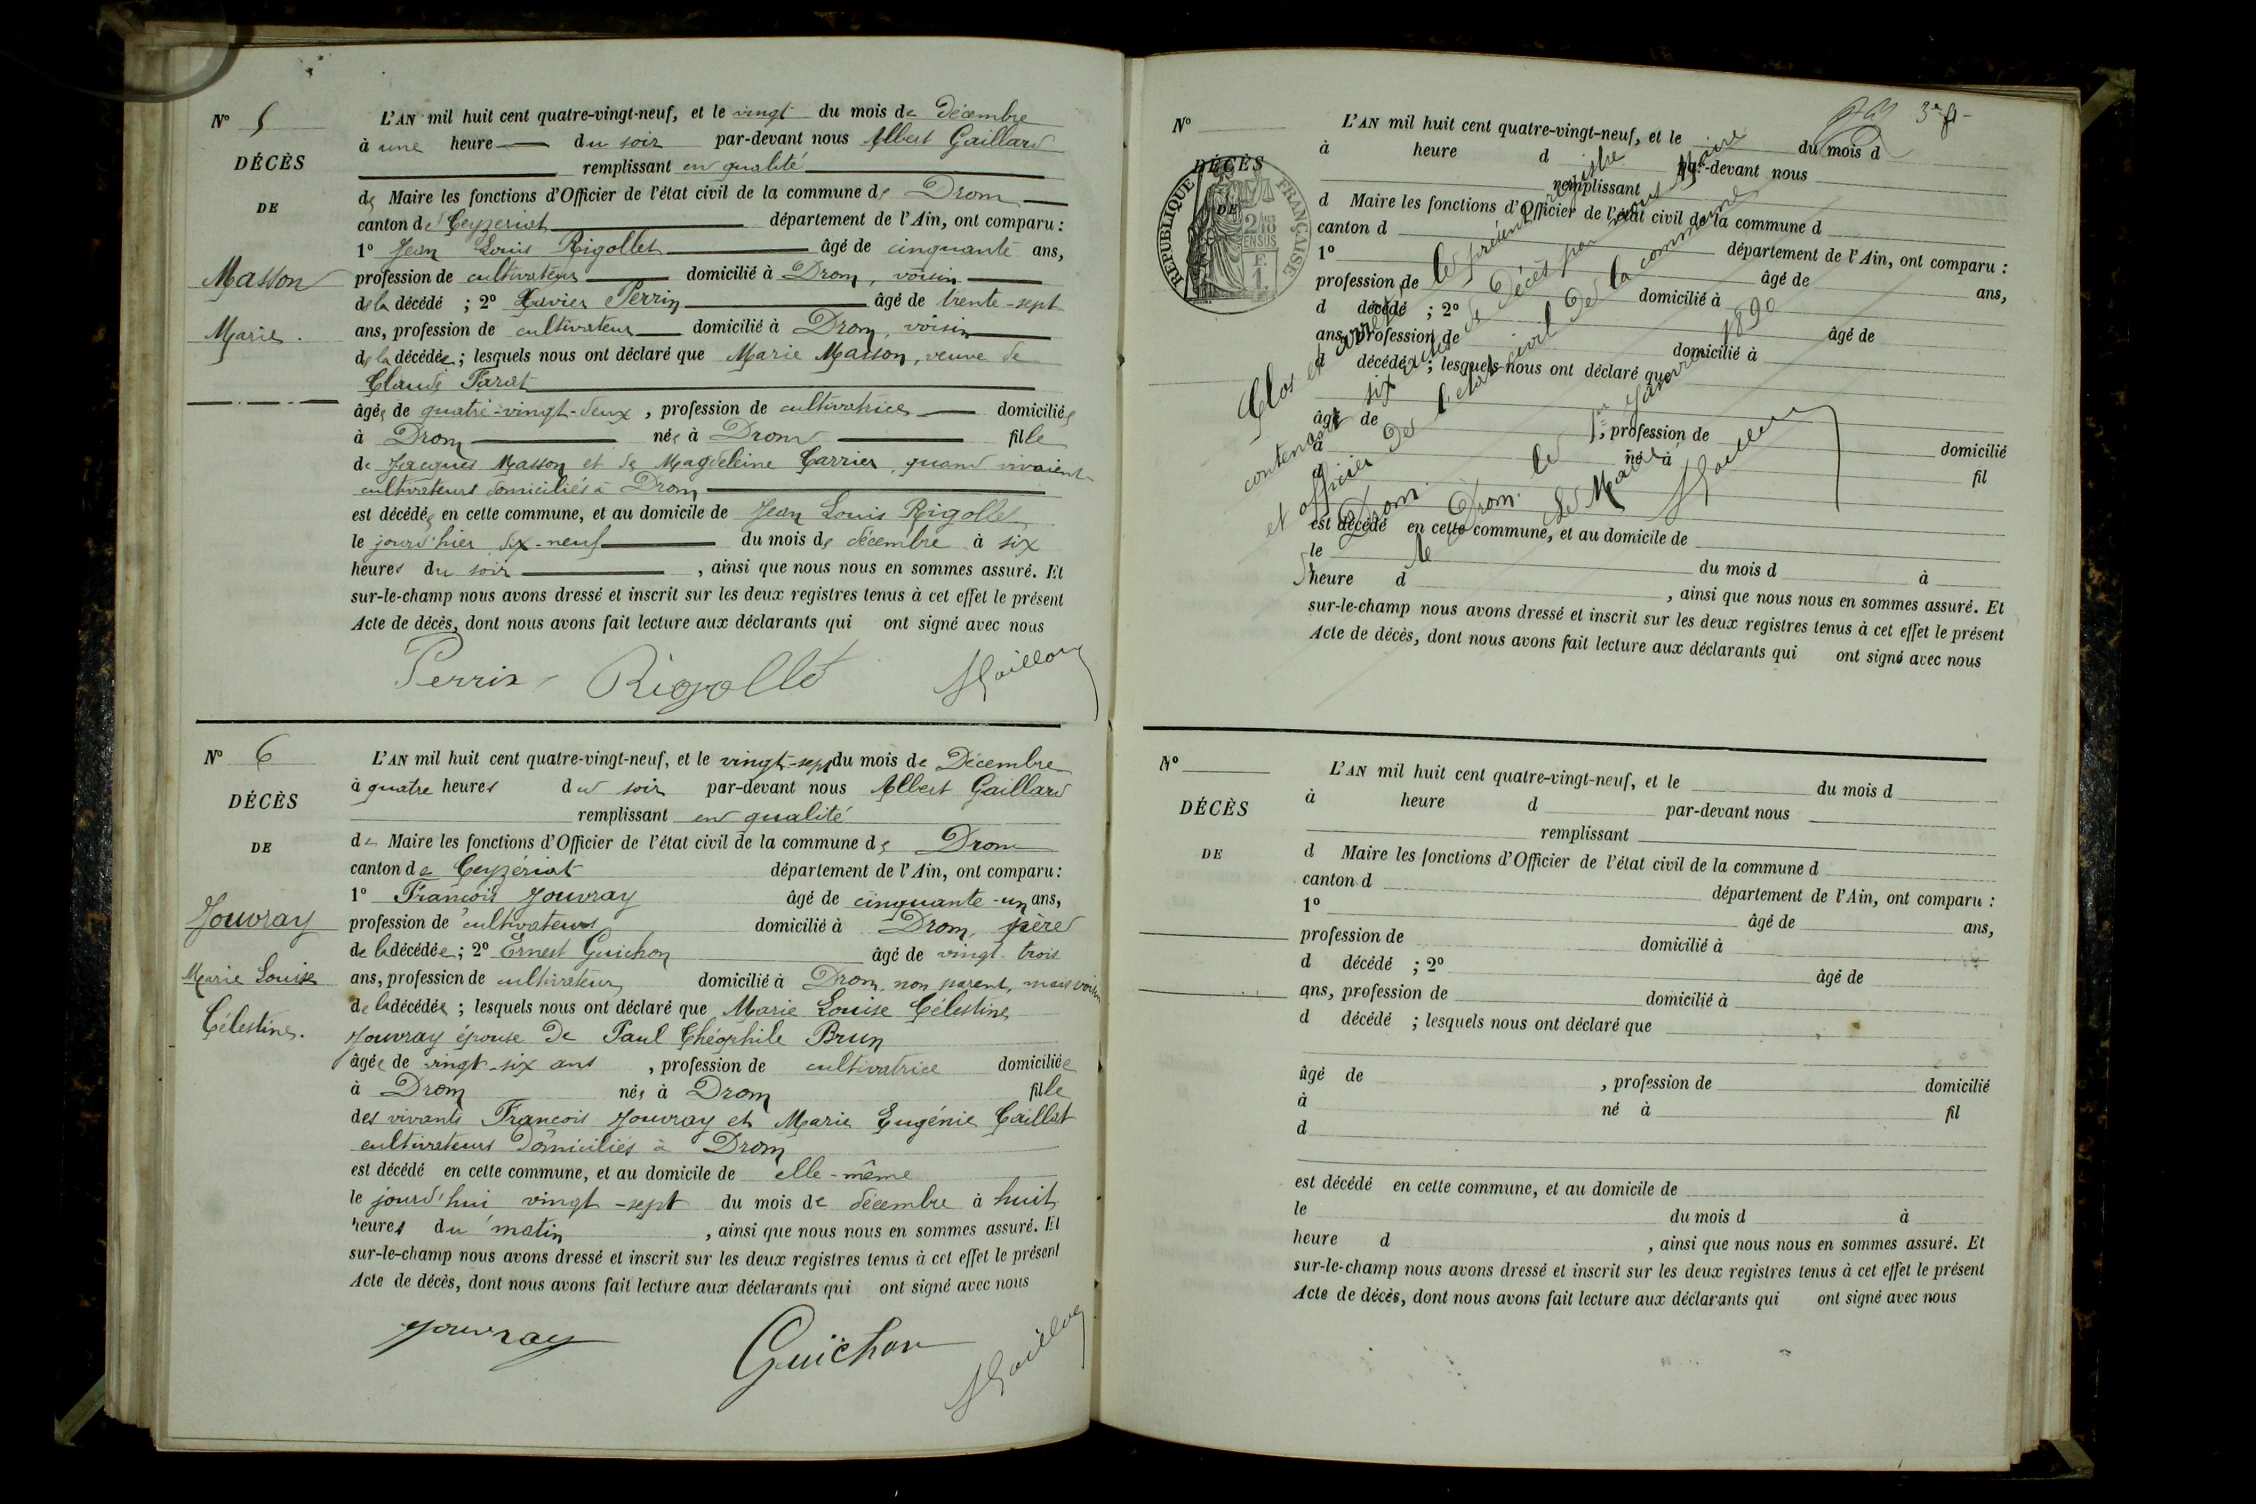 N° 5
DÉCÈS
DE
Masson
Marie.
L'AN mil huit cent quatre-vingt-neuf, et le vingt du mois de Décembre
à une heure du soir par-devant nous Albert Gaillard
remplissant en qualité
de Maire les fonctions d'Officier de l'état civil de la commune de Drom
canton de Ceyzériat département de l'Ain, ont comparu :
1° Jean Louis Rigollet âgé de cinquante ans,
profession de cultivateur domicilié à Drom, voisin
de la décédé ; 2° Xavier Perrin âgé de trente-sept
ans, profession de cultivateur domicilié à Drom, voisin
de la décédée ; lesquels nous ont déclaré que Marie Masson, veuve de
Claude
âgée de quatre-vingt-deux, profession de cultivatrice domiciliée
à Drom née à Drom fille
de Jacques Masson et de Magdeleine Carrier, quand vivaient
cultivateurs domiciliés à Drom
est décédée en cette commune, et au domicile de Jean Louis Rigollet
le jourd'hier dix-neuf du mois de décembre à six
heures du soir, ainsi que nous nous en sommes assuré. Et
sur-le-champ nous avons dressé et inscrit sur les deux registres tenus à cet effet le présent
Acte de décès, dont nous avons fait lecture aux déclarants qui ont signé avec nous
Perrin Rigollet AGaillard
N° 6
DÉCÈS
DE
Jouvray
Marie Louise
Célestine.
L'AN mil huit cent quatre-vingt-neuf, et le vingt-sept du mois de Décembre
à quatre heures du soir par-devant nous Albert Gaillard
remplissant en qualité
de Maire les fonctions d'Officier de l'état civil de la commune de Drom
canton de Ceyzériat département de l'Ain, ont comparu :
1° François Jouvray âgé de cinquante-un ans,
profession de cultivateur domicilié à Drom, père
de la décédée ; 2° Ernest Guichon âgé de vingt-trois
ans, profession de cultivateur domicilié à Drom, non parent, mais voisin
de la décédée ; lesquels nous ont déclaré que Marie Louise Célestine
Jouvray épouse de Paul Théophile Brun
âgée de vingt-six ans, profession de cultivatrice domiciliée
à Drom née à Drom fille
des vivants François Jouvray et Marie Eugénie Caillat
cultivateurs domiciliés à Drom
est décédé en cette commune, et au domicile de elle-même
le jourd'hui vingt-sept du mois de décembre à huit
heures du matin, ainsi que nous nous en sommes assuré. Et
sur-le-champ nous avons dressé et inscrit sur les deux registres tenus à cet effet le présent
Acte de décès, dont nous avons fait lecture aux déclarants qui ont signé avec nous
Jouvray Guichon AGaillard
N°
DÉCÈS
DE
RÉPUBLIQUE FRANÇAISE
L'AN mil huit cent quatre-vingt-neuf, et le du mois d
à heure d par-devant nous
remplissant
d Maire les fonctions d'Officier de l'état civil de la commune d
canton d département de l'Ain, ont comparu :
1° âgé de ans,
profession de domicilié à
d décédé ; 2° âgé de
ans, profession de domicilié à
d décédé ; lesquels nous ont déclaré que
âgé de , profession de domicilié
à né à fil
d
est décédé en cette commune, et au domicile de
le du mois d à
heure d , ainsi que nous nous en sommes assuré. Et
sur-le-champ nous avons dressé et inscrit sur les deux registres tenus à cet effet le présent
Acte de décès, dont nous avons fait lecture aux déclarants qui ont signé avec nous
Clos et arrêté le présent registre
contenant six actes de décès par nous Maire
et officier de l'état civil de la commune
de Drom.
Drom le 1er Janvier 1890
Le Maire
AGaillard
N°
DÉCÈS
DE
L'AN mil huit cent quatre-vingt-neuf, et le du mois d
à heure d par-devant nous
remplissant
d Maire les fonctions d'Officier de l'état civil de la commune d
canton d département de l'Ain, ont comparu :
1° âgé de ans,
profession de domicilié à
d décédé ; 2° âgé de
ans, profession de domicilié à
d décédé ; lesquels nous ont déclaré que
âgé de , profession de domicilié
à né à fil
d
est décédé en cette commune, et au domicile de
le du mois d à
heure d , ainsi que nous nous en sommes assuré. Et
sur-le-champ nous avons dressé et inscrit sur les deux registres tenus à cet effet le présent
Acte de décès, dont nous avons fait lecture aux déclarants qui ont signé avec nous